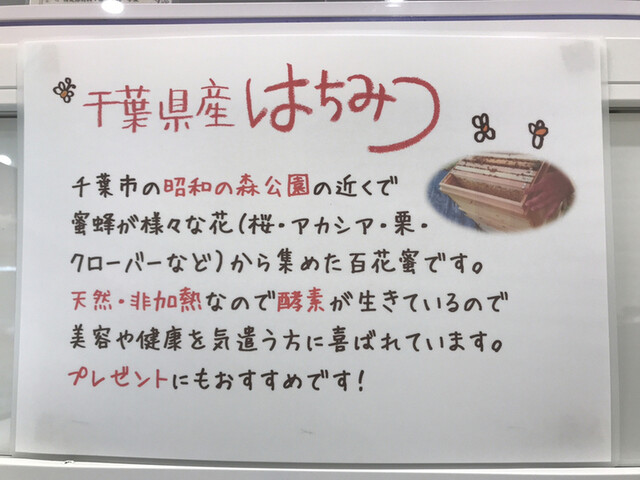 千葉県産はちみつ
千葉市の昭和の森公園の近くで
蜜蜂が様々な花(桜・アカシア・栗・
クローバーなど)から集めた百花蜜です。
天然・非加熱なので酵素が生きているので
美容や健康を気遣う方に喜ばれています。
プレゼントにもおすすめです!